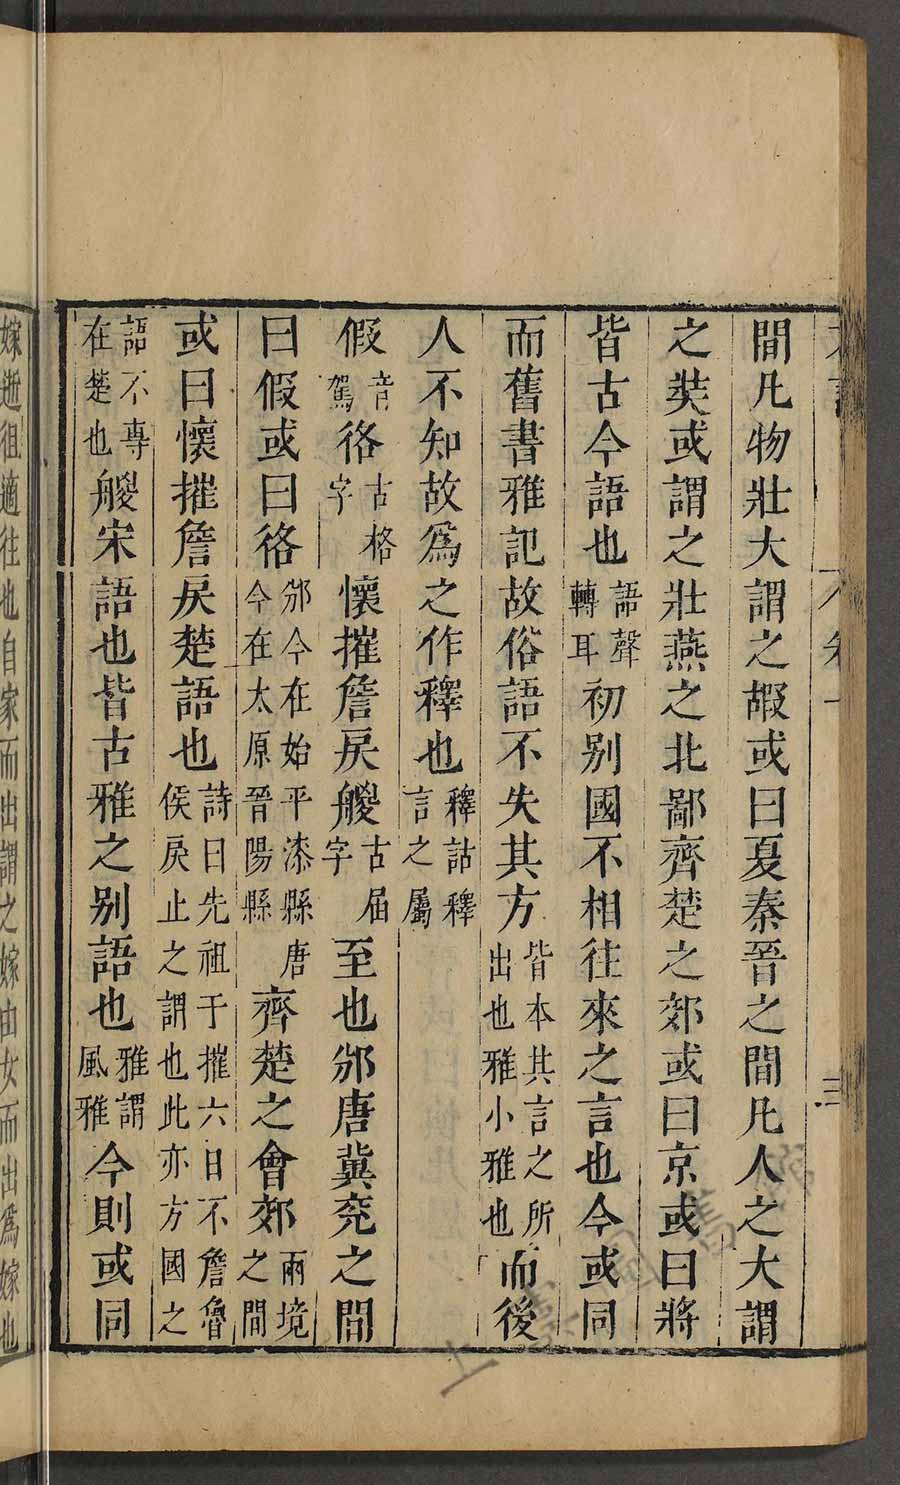 卷一
三
間凡物壯大謂之嘏或曰夏秦晉之間凡人之大謂
之奘或謂之壯燕之北鄙齊楚之郊或曰京或曰將
皆古今語也語聲轉耳初别國不相往來之言也今或同
而舊書雅記故俗語不失其方皆本其言之所出也雅小雅也而後
人不知故爲之作釋也釋詁釋言之屬
假音駕𢓜古格字懷摧詹戾艐古届字至也邠唐冀兖之間
曰假或曰𢓜邠今在始平漆縣唐今在太原晉陽縣齊楚之會郊兩境之間
或曰懷摧詹戾楚語也詩曰先祖于摧六日不詹魯侯戾止之謂也此亦方國之
語不專在楚也艐宋語也皆古雅之别語也雅謂風雅今則或同
嫁逝徂適往也自家而出謂之嫁由女而出爲嫁也